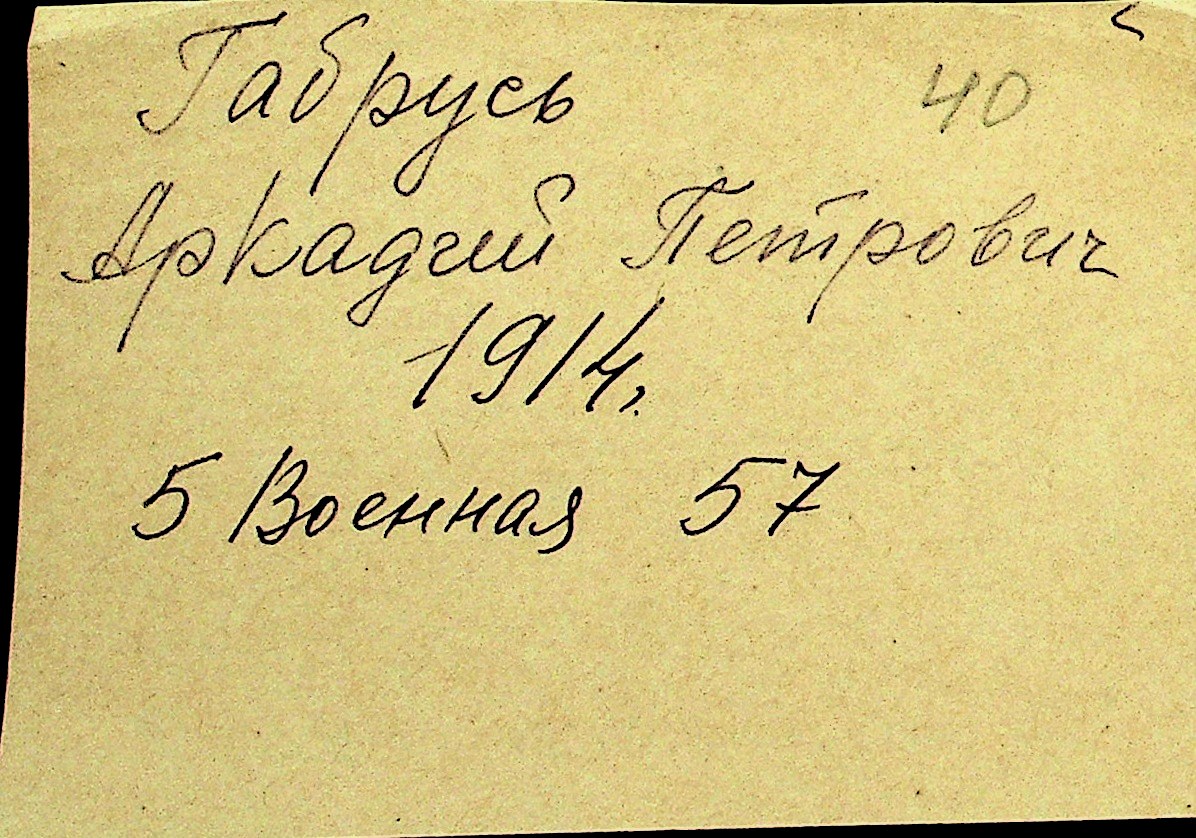 Габрусь 40
Аркадий Петрович
1914.
5 Военная 57